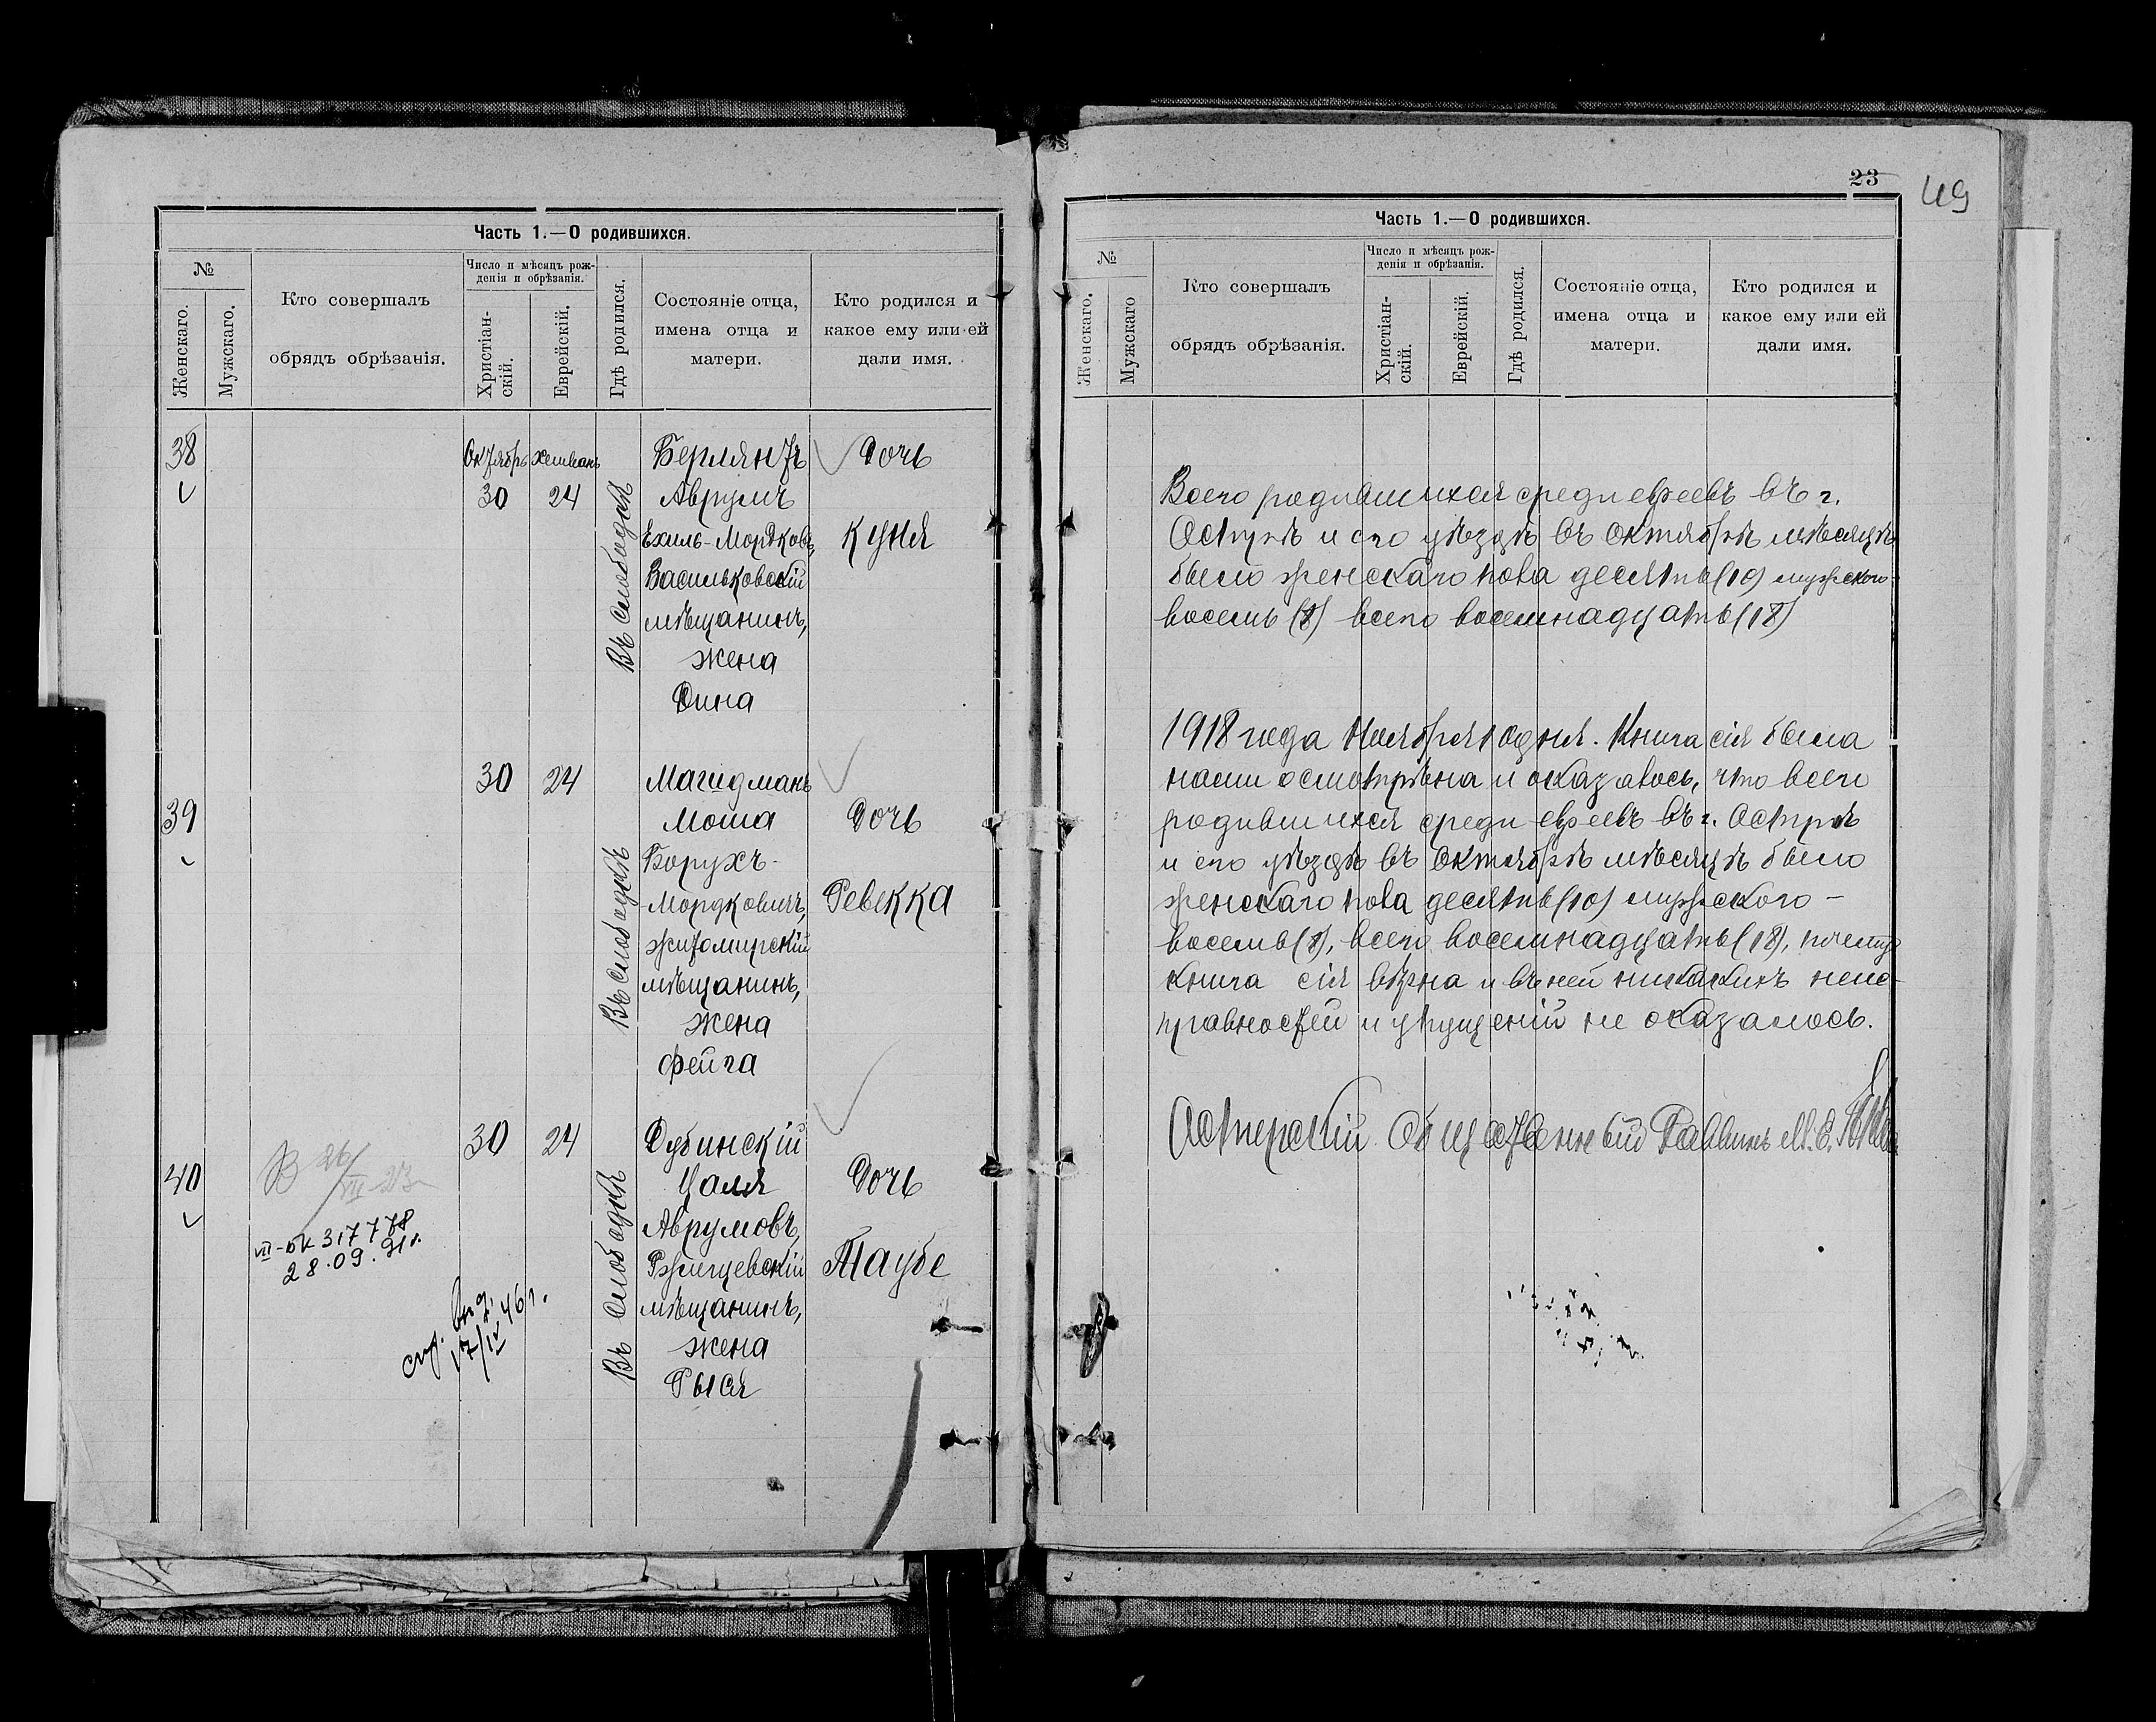 Часть 1.—О родившихся.
№
Женскаго.
Мужскаго.
Кто совершалъ
обрядъ обрѣзанія.
Число и мѣсяцъ рож-
денія и обрѣзанія.
Христіан-
скій.
Еврейскій.
Гдѣ родился.
Состояніе отца,
имена отца и
матери.
Кто родился и
какое ему или ей
дали имя.
38
Октябрь
Хешванъ
30
24
Въ Слободкѣ
Берлянтъ
Аврумъ
Ехиль-Мордковъ,
Васильковскій
мѣщанинъ,
жена
Дина
Дочь
Куня
39
30
24
Въ Слободкѣ
Магидманъ
Моша
Борухъ-
Мордковичъ,
житомирскій
мѣщанинъ,
жена
Фейга
Дочь
Ревекка
40
В 26/VIII
VII-ЮК 317778
28.09.91г.
17/IV 46г.
30
24
Въ Слободкѣ
Дубинскій
Цаля
Аврумовъ,
Ржищевскій
мѣщанинъ,
жена
Рыся
Дочь
Таубе
23
49
Часть 1.—О родившихся.
№
Женскаго.
Мужскаго
Кто совершалъ
обрядъ обрѣзанія.
Число и мѣсяцъ рож-
денія и обрѣзанія.
Христіан-
скій.
Еврейскій.
Гдѣ родился.
Состояніе отца,
имена отца и
матери.
Кто родился и
какое ему или ей
дали имя.
Всего родившихся среди евреевъ въ г.
Острѣ и его уѣздѣ въ октябрѣ мѣсяцѣ
было женскаго пола десять (10) мужского
восемь (8) всего восемнадцать (18)
1918 года Ноября 1 дня. Книга сія была
нами осмотрѣна и оказалось, что всего
родившихся среди евреевъ въ г. Острѣ
и его уѣздѣ въ октябрѣ мѣсяцѣ было
женскаго пола десять (10) мужского -
восемь (8), всего восемнадцать (18),
книга сія вѣрна и въ ней никакихъ неис-
правностей и упущеній не оказалось.
Остерскій Общественный Раввинъ М. Е.